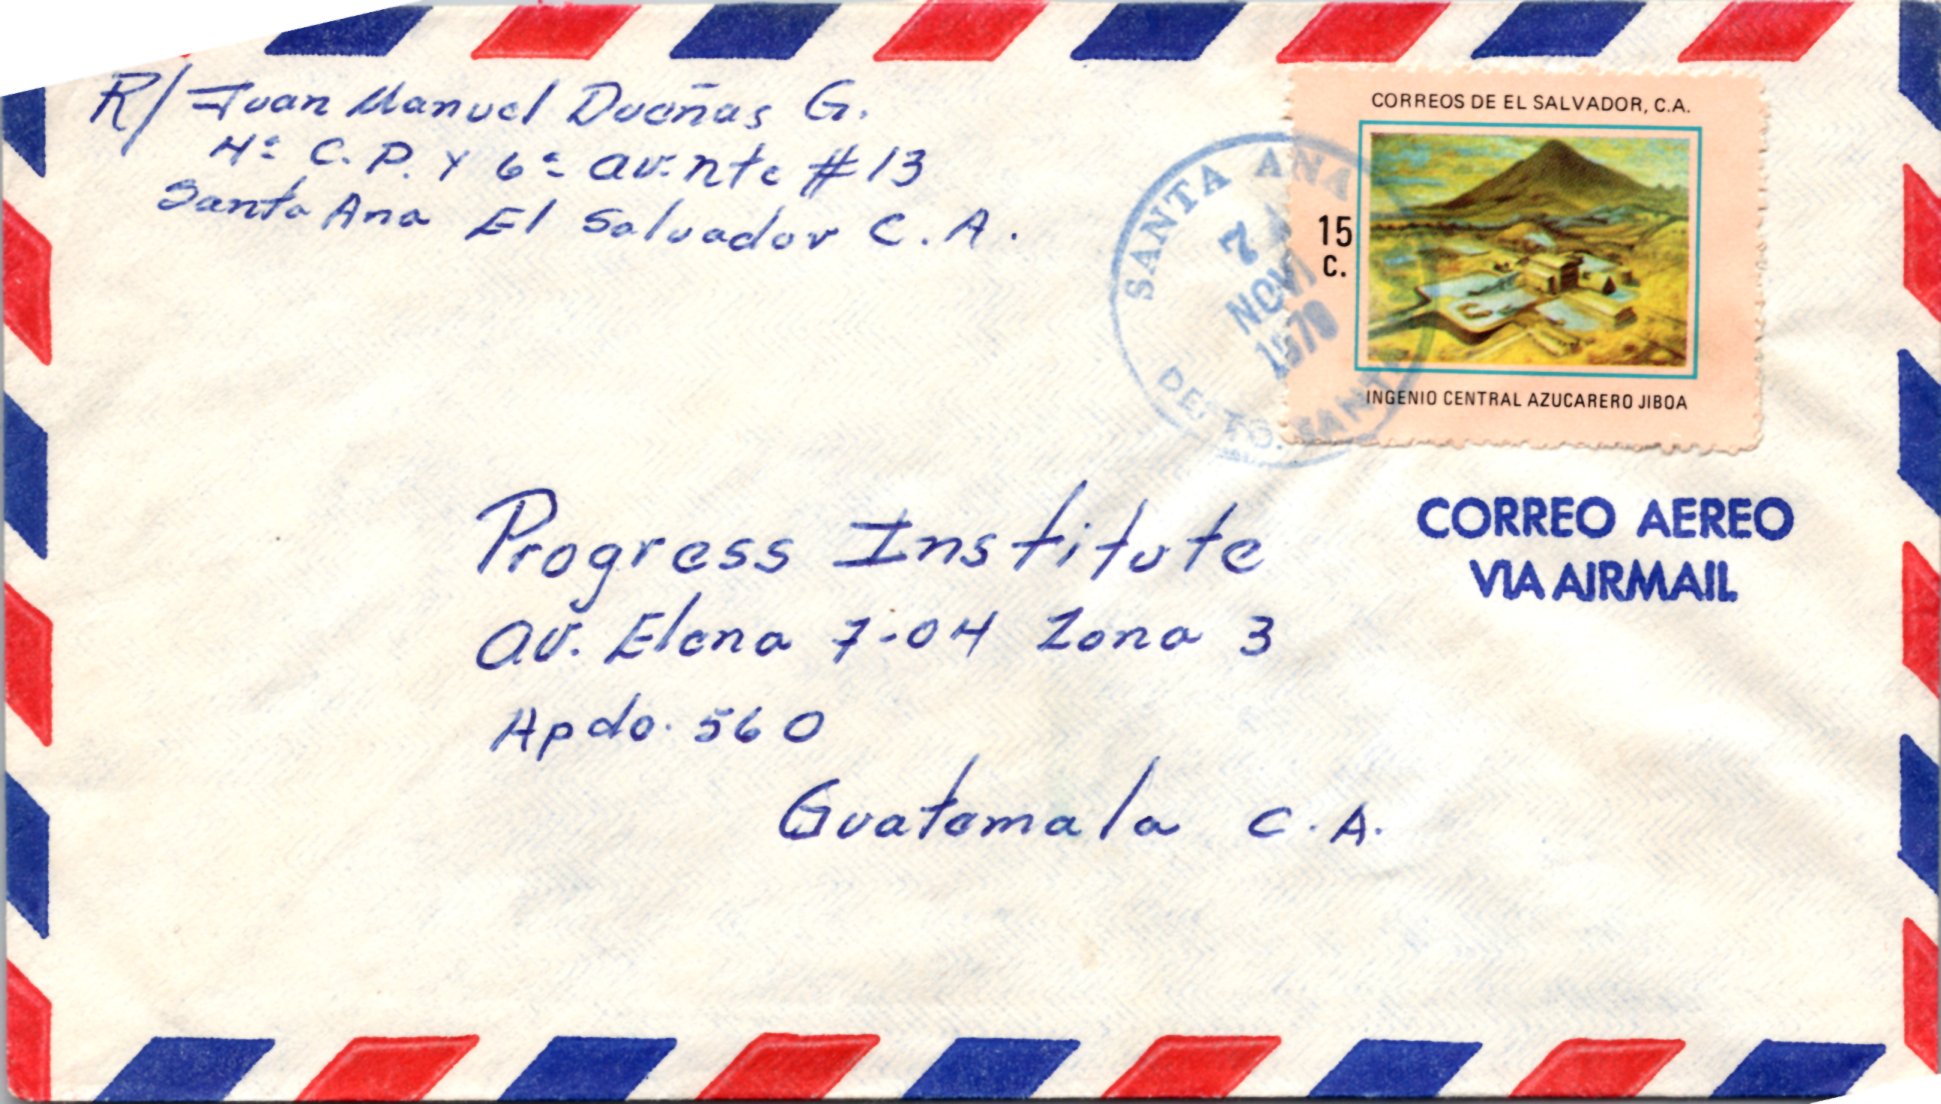 R/ Juan Manuel Dueñas G.
4ª C. P. y 6ª av. nte #13
Santa Ana El Salvador C. A.
CORREOS DE EL SALVADOR, C.A.
15
C.
INGENIO CENTRAL AZUCARERO JIBOA
SANTA ANA
7
NOV
DE
CORREO AEREO
VIA AIRMAIL
Progress Institute
av. Elena 7-04 Zona 3
Apdo. 560
Guatemala C. A.